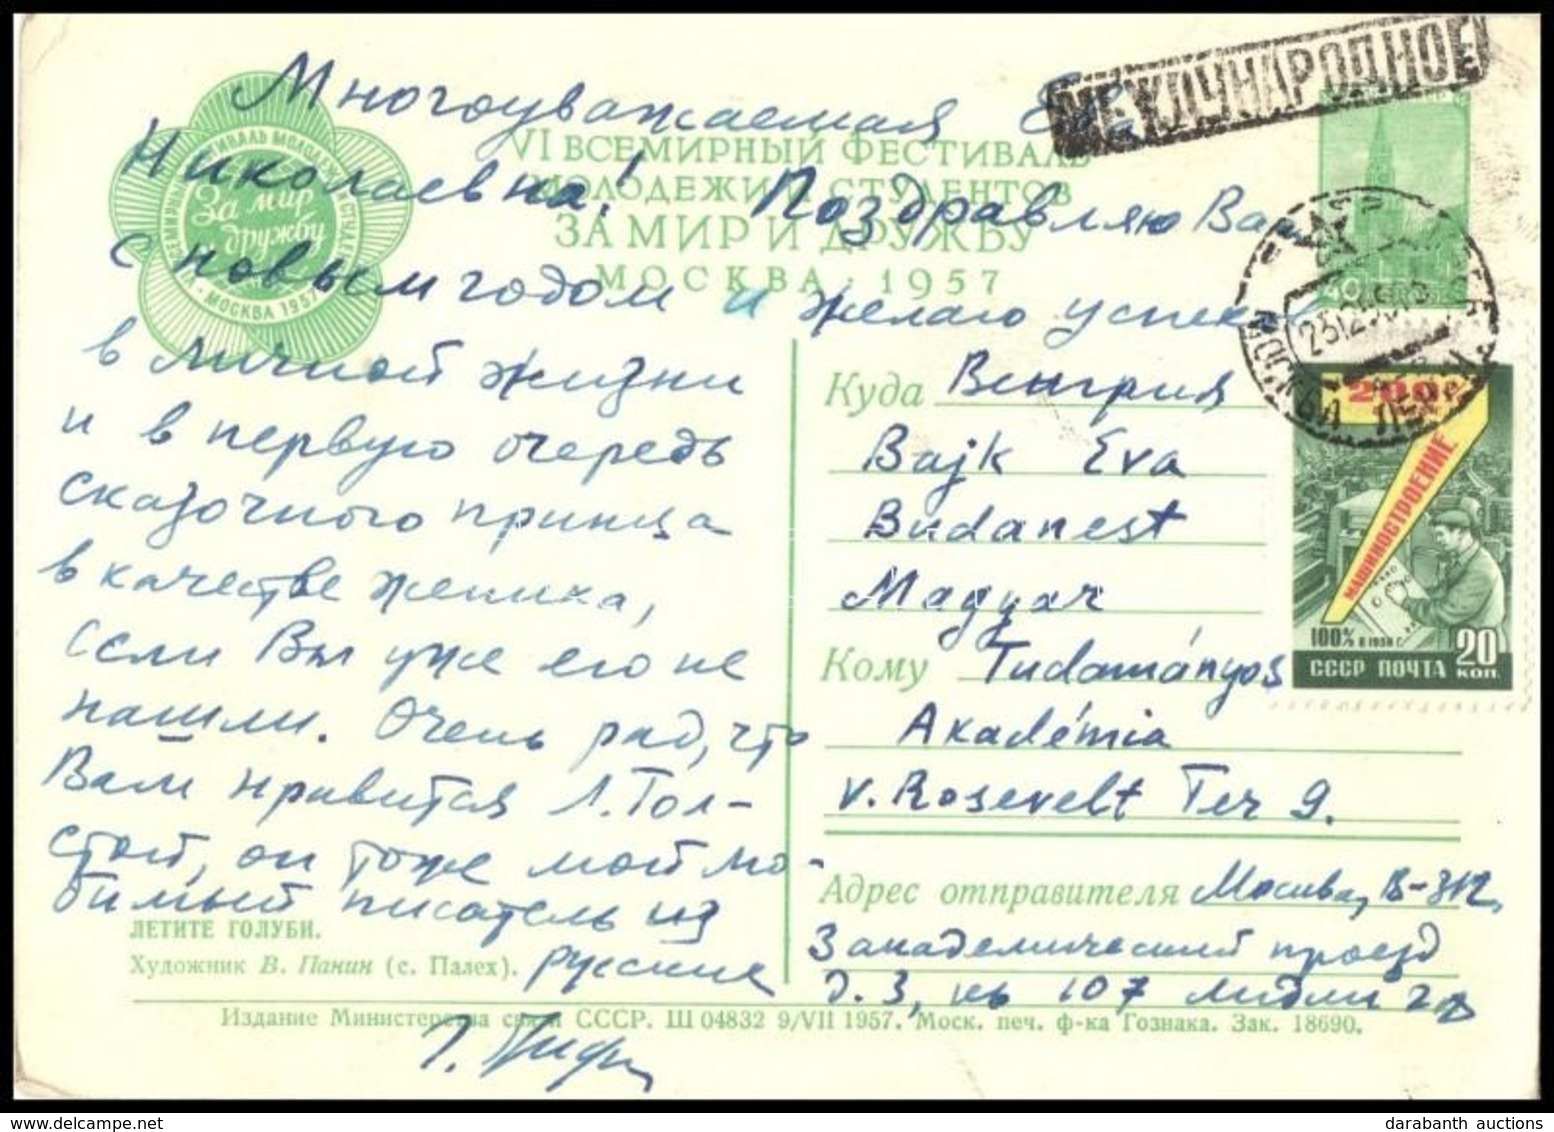 МЕЖДУНАРОДНОЕ
Многоуважаемая Ева
Николаевна! Поздравляю Вас
с новым годом и желаю успеха
в личной жизни
и в первую очередь
сказочного принца
в качестве жениха,
если Вы уже его не
нашли. Очень рад, что
Вам нравится Л. Тол-
стой, он тоже мой лю-
бимый писатель из
русских
VI ВСЕМИРНЫЙ ФЕСТИВАЛЬ
МОЛОДЕЖИ И СТУДЕНТОВ
ЗА МИР И ДРУЖБУ
МОСКВА · 1957
За мир
и
дружбу
МОСКВА 1957
Куда Венгрия
Bajk Eva
Budapest
Magyar
Кому Tudományos
Akadémia
v. Rosevelt Ter 9.
Адрес отправителя Москва, В-312,
3 академический проезд
д. 3, кв 107
200%
МАШИНОСТРОЕНИЕ
100% В 1958 Г.
СССР ПОЧТА 20 КОП.
40
ЛЕТИТЕ ГОЛУБИ.
Художник В. Панин (с. Палех).
Издание Министерства связи СССР. Ш 04832 9/VII 1957. Моск. печ. ф-ка Гознака. Зак. 18690.
darabanth auctions